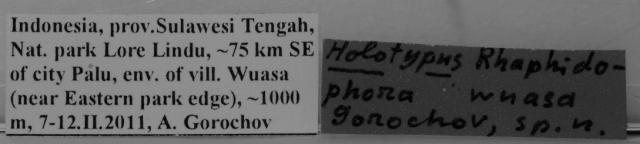 Indonesia, prov.Sulawesi Tengah,
Nat. park Lore Lindu, ~75 km SE
of city Palu, env. of vill. Wuasa
(near Eastern park edge), ~1000
m, 7-12.II.2011, A. Gorochov
Holotypus Rhaphido-
phora wuasa
Gorochov, sp. n.